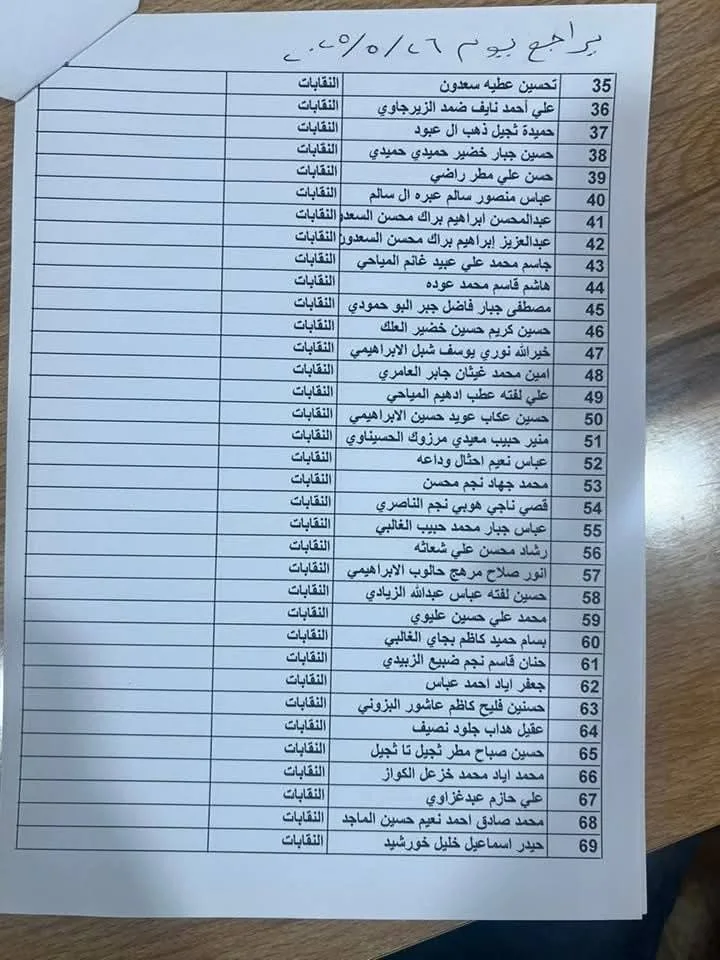 يراجع يوم ٢٦/٥/٢٠٢٥
35 تحسين عطيه سعدون النقابات
36 علي أحمد نايف ضمد الزيرجاوي النقابات
37 حميدة ثجيل ذهب ال عبود النقابات
38 حسين جبار خضير حميدي حميدي النقابات
39 حسن علي مطر راضي النقابات
40 عباس منصور سالم عبره ال سالم النقابات
41 عبدالمحسن ابراهيم براك محسن السعدو النقابات
42 عبدالعزيز إبراهيم براك محسن السعدون النقابات
43 جاسم محمد علي عبيد غانم المياحي النقابات
44 هاشم قاسم محمد عوده النقابات
45 مصطفى جبار فاضل جبر البو حمودي النقابات
46 حسين كريم حسين خضير العلك النقابات
47 خيرالله نوري يوسف شبل الابراهيمي النقابات
48 امين محمد غيثان جابر العامري النقابات
49 علي لفته عطب ادهيم المياحي النقابات
50 حسين عكاب عويد حسين الابراهيمي النقابات
51 منير حبيب معيدي مرزوك الحسيناوي النقابات
52 عباس نعيم احثال وداعه النقابات
53 محمد جهاد نجم محسن النقابات
54 قصي ناجي هوبي نجم الناصري النقابات
55 عباس جبار محمد حبيب الغالبي النقابات
56 رشاد محسن علي شعاثه النقابات
57 انور صلاح مرهج حالوب الابراهيمي النقابات
58 حسين لفته عباس عبدالله الزيادي النقابات
59 محمد علي حسين عليوي النقابات
60 بسام حميد كاظم بجاي الغالبي النقابات
61 حنان قاسم نجم ضبيع الزبيدي النقابات
62 جعفر اياد احمد عباس النقابات
63 حسنين فليح كاظم عاشور البزوني النقابات
64 عقيل هداب جلود نصيف النقابات
65 حسين صباح مطر ثجيل تا ثجيل النقابات
66 محمد اياد محمد خزعل الكواز النقابات
67 علي حازم عبدغزاوي النقابات
68 محمد صادق احمد نعيم حسين الماجد النقابات
69 حيدر اسماعيل خليل خورشيد النقابات